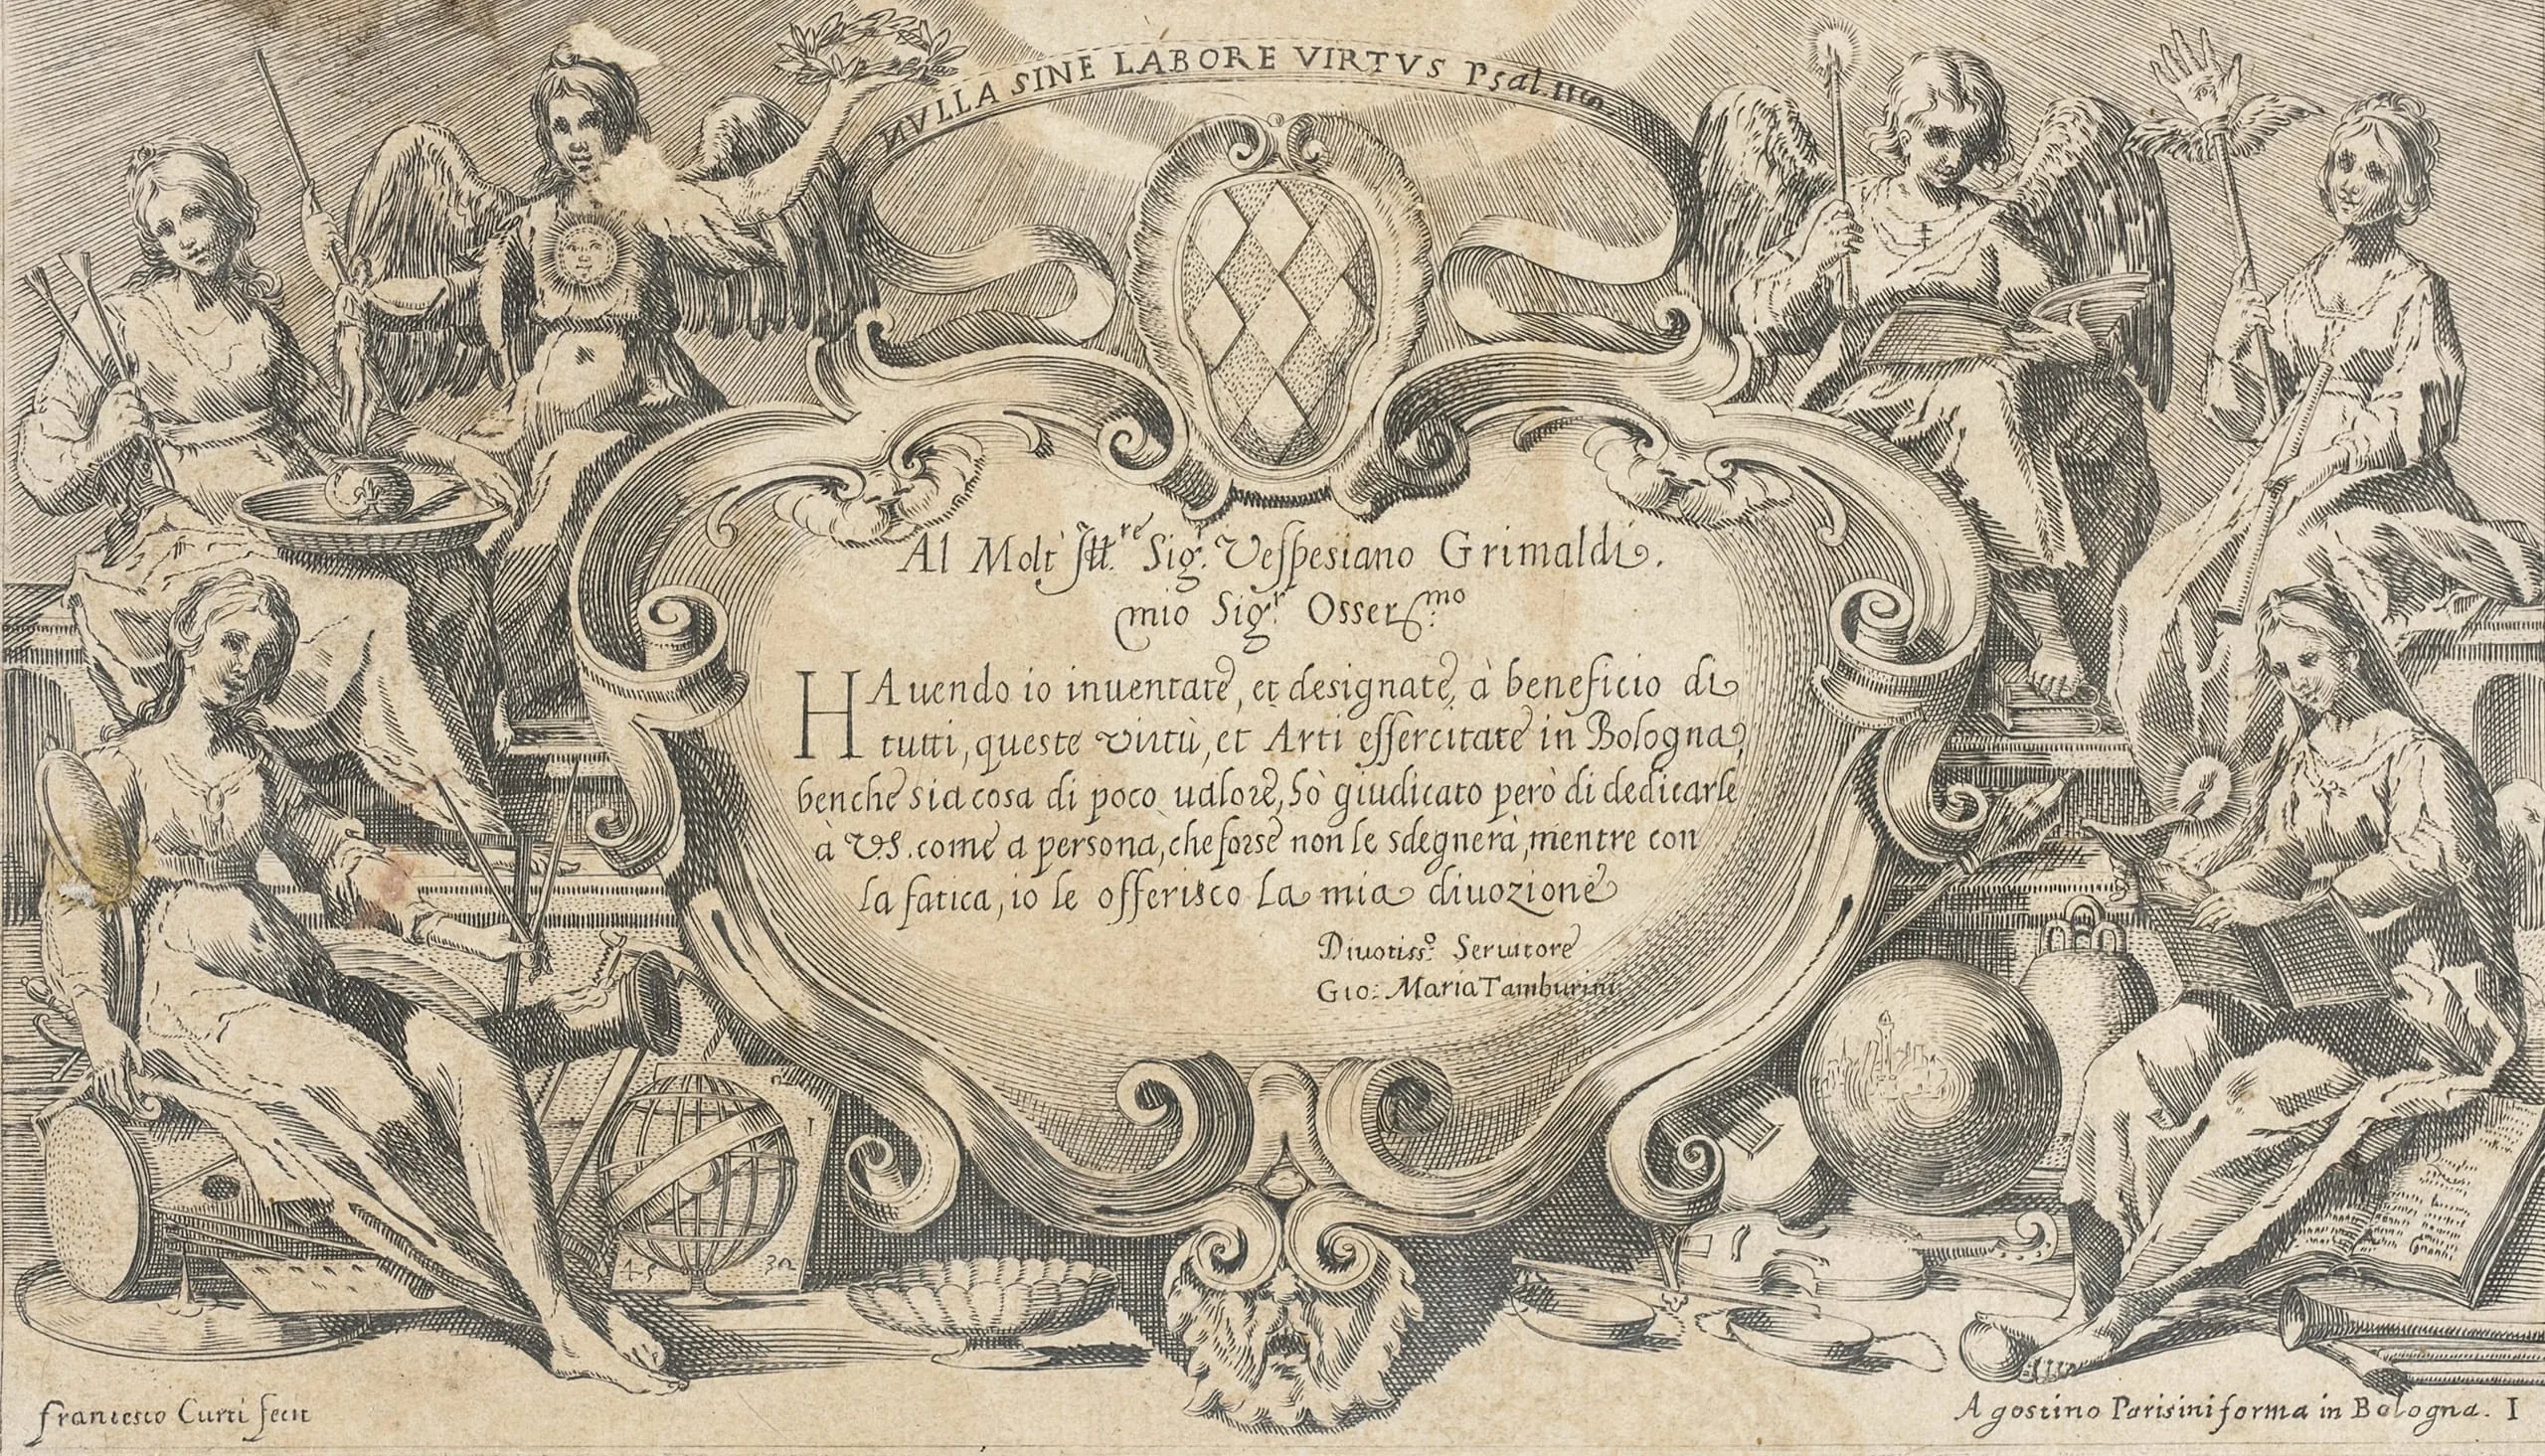 NVLLA SINE LABORE VIRTVS Psal.
Al Molt' Ill.re Sig.r Vespesiano Grimaldi.
mio Sig.r Osser.mo
HAuendo io inuentate, et designate, à beneficio di
tutti, queste virtù, et Arti essercitate in Bologna,
benche sia cosa di poco ualore, hò giudicato però di dedicarle
à V.S. come a persona, che forse non le sdegnerà, mentre con
la fatica, io le offerisco la mia diuozione
Diuotiss.o Seruitore
Gio: Maria Tamburini
francesco Curti fecit
Agostino Parisini forma in Bologna. I